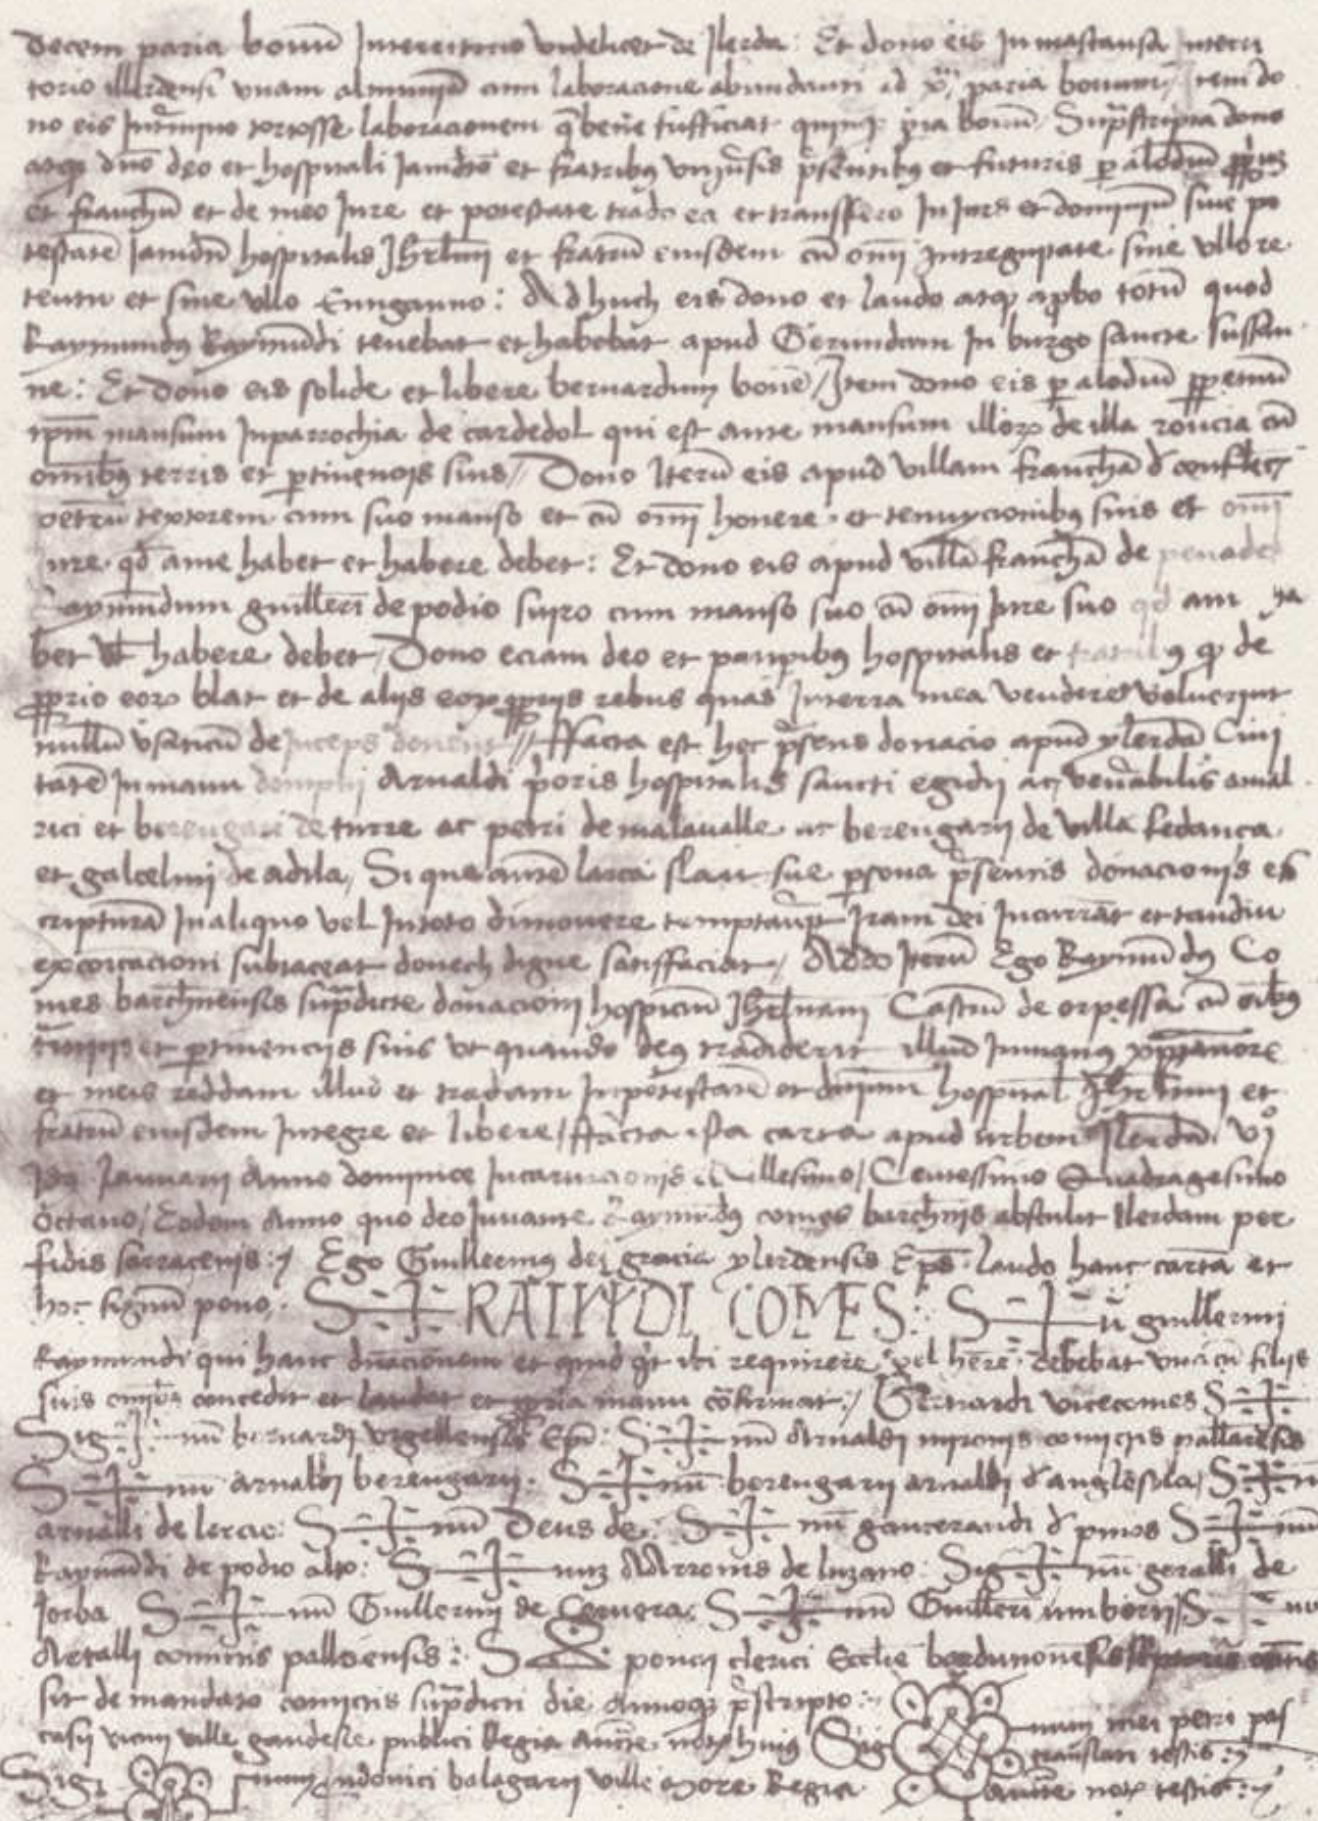 decem paria bouū Interritorio videlicet de Ilerda: Et dono eis Inmascansa Interri
torio Illerdensi vnam almuniā cum laboracione abundanti ad paria bouum, Item do
no eis Intermino tortosse laboracionem q̄ bene sufficiat quinq; pia bouū, Sup̄scripta dono
atq; dno deo et hospitali Iamdco et fratribꝰ vniūsis p̄sentibꝰ et futuris p alodiū
et franchū et de meo Iure et potestate trado ea et transffero In Iure et dominiū siue po
testatē Iamdci hospitalis Jhrlmi et fratrū eiusdem cū omī Integritate sine vllo re
tentu et sine vllo Ennganno: Adhuch eis dono et laudo atq; apbo totū quod
Raymundꝰ Raymūdi tenebat et habebat apud Gerundam In burgo sancte Sussan
ne: Et dono eis solide et libere bernardum bonē / Item dono eis p alodiū ppetuū
ipm mansum Inparrochia de cardedol qui est ante mansum illoꝝ de illa rouria cū
omībꝰ terris et ptinencijs suis // Dono Iterū eis apud villam franchā d conflēt
petrū textorem cum suo manso et cū omī honere et tenuycionibꝰ suis et omī
iure qd ame habet et habere debet: Et dono eis apud villā franchā de penades
Raymūdum guillerī de podio suiro cum manso suo cū omī Iure suo qd am ha
bet ul habere debet, Dono eciam deo et paupibꝰ hospitalis et fratribꝰ qd de
pprio eoꝝ blat et de alijs eoꝝ ppijs rebus quas Interra mea vendere voluerint
nullū vsaticū deInceps donent // ffacta est hec p̄sens donacio apud ylerdā Ciui
tatē Inmanu dompni Arnaldi p̄oris hospitalis sancti egidij ac ven̄abilis amal
rici et berengarii de turre ac petri de malaualle ac berengarij de villa fedanca
et galcelmi de adila, Si qua autē laica siue psona p̄sentis donacionis es
cripturā Inaliquo vel Intoto dimouere temptaūit Iram dei Incurrāt et tandiu
excortacioni subiaceat donech digne satisffaciat / Addo Iterū Ego Raymūdꝰ Co
mes barchnensis sup̄dicte donacioni hospiciū Jhrlnani Castrū de orpessa cū oībꝰ
tminis et ptinencijs suis vt quando deꝰ tradiderit illud Inmanꝰ
et meis reddam illud et tradam Inpotestatē et dnium hospital Jhrlmi et
fratrū eiusdem Integre et libere / ffacta Ista carta apud urbem Ilerdā VIº
Idꝰ Ianuarij Anno dominice Incarnacionis Millesimo / Centessimo Quadragesimo
octauo / Eodem Anno quo deo Iuuante Raymūdꝰ comes barchnis abstulit Ilerdam per
fidis sarracenis: Ego Guillermꝰ dei gracia ylerdensis Eps. laudo hanc cartā et
hoc signū pono. S RAIMVDI COMES: S ū guillermi
Raymundi qui hanc dnacionem et quid ibi requirere vel hēre debebat vna cū filijs
suis omībꝰ concedit et laudat et ppria manu cōfirmat / Gerardi vicecomes S
Sig nū bernardi vrgellensis Epi: S nū Arnaldi mironis comitis pallarēsis
S nū arnaldi berengarij. S nū berengarij arnaldi d'anglesola, S n
arnalli de lercic: S nū Deus de: S nū gaucerandi d pinos S nū
Raymūdi de podio alto: S num de luzano: Sig nū geralli de
Jorba S nū Guillermi de Ceruera: S nū Guillerī umberti S nu
Artalli comitis pallsensis: S poncij clerici Ecclie
sit de mandato comitis sup̄dicti die Annoq; p̄scripto:
casij vicini ville gandesie publici Regia Aucte notꝝ huius Sig num mei petri pas
translati testis:
Sig num ludouici balagarij ville more Regia aucte notꝝ testis: